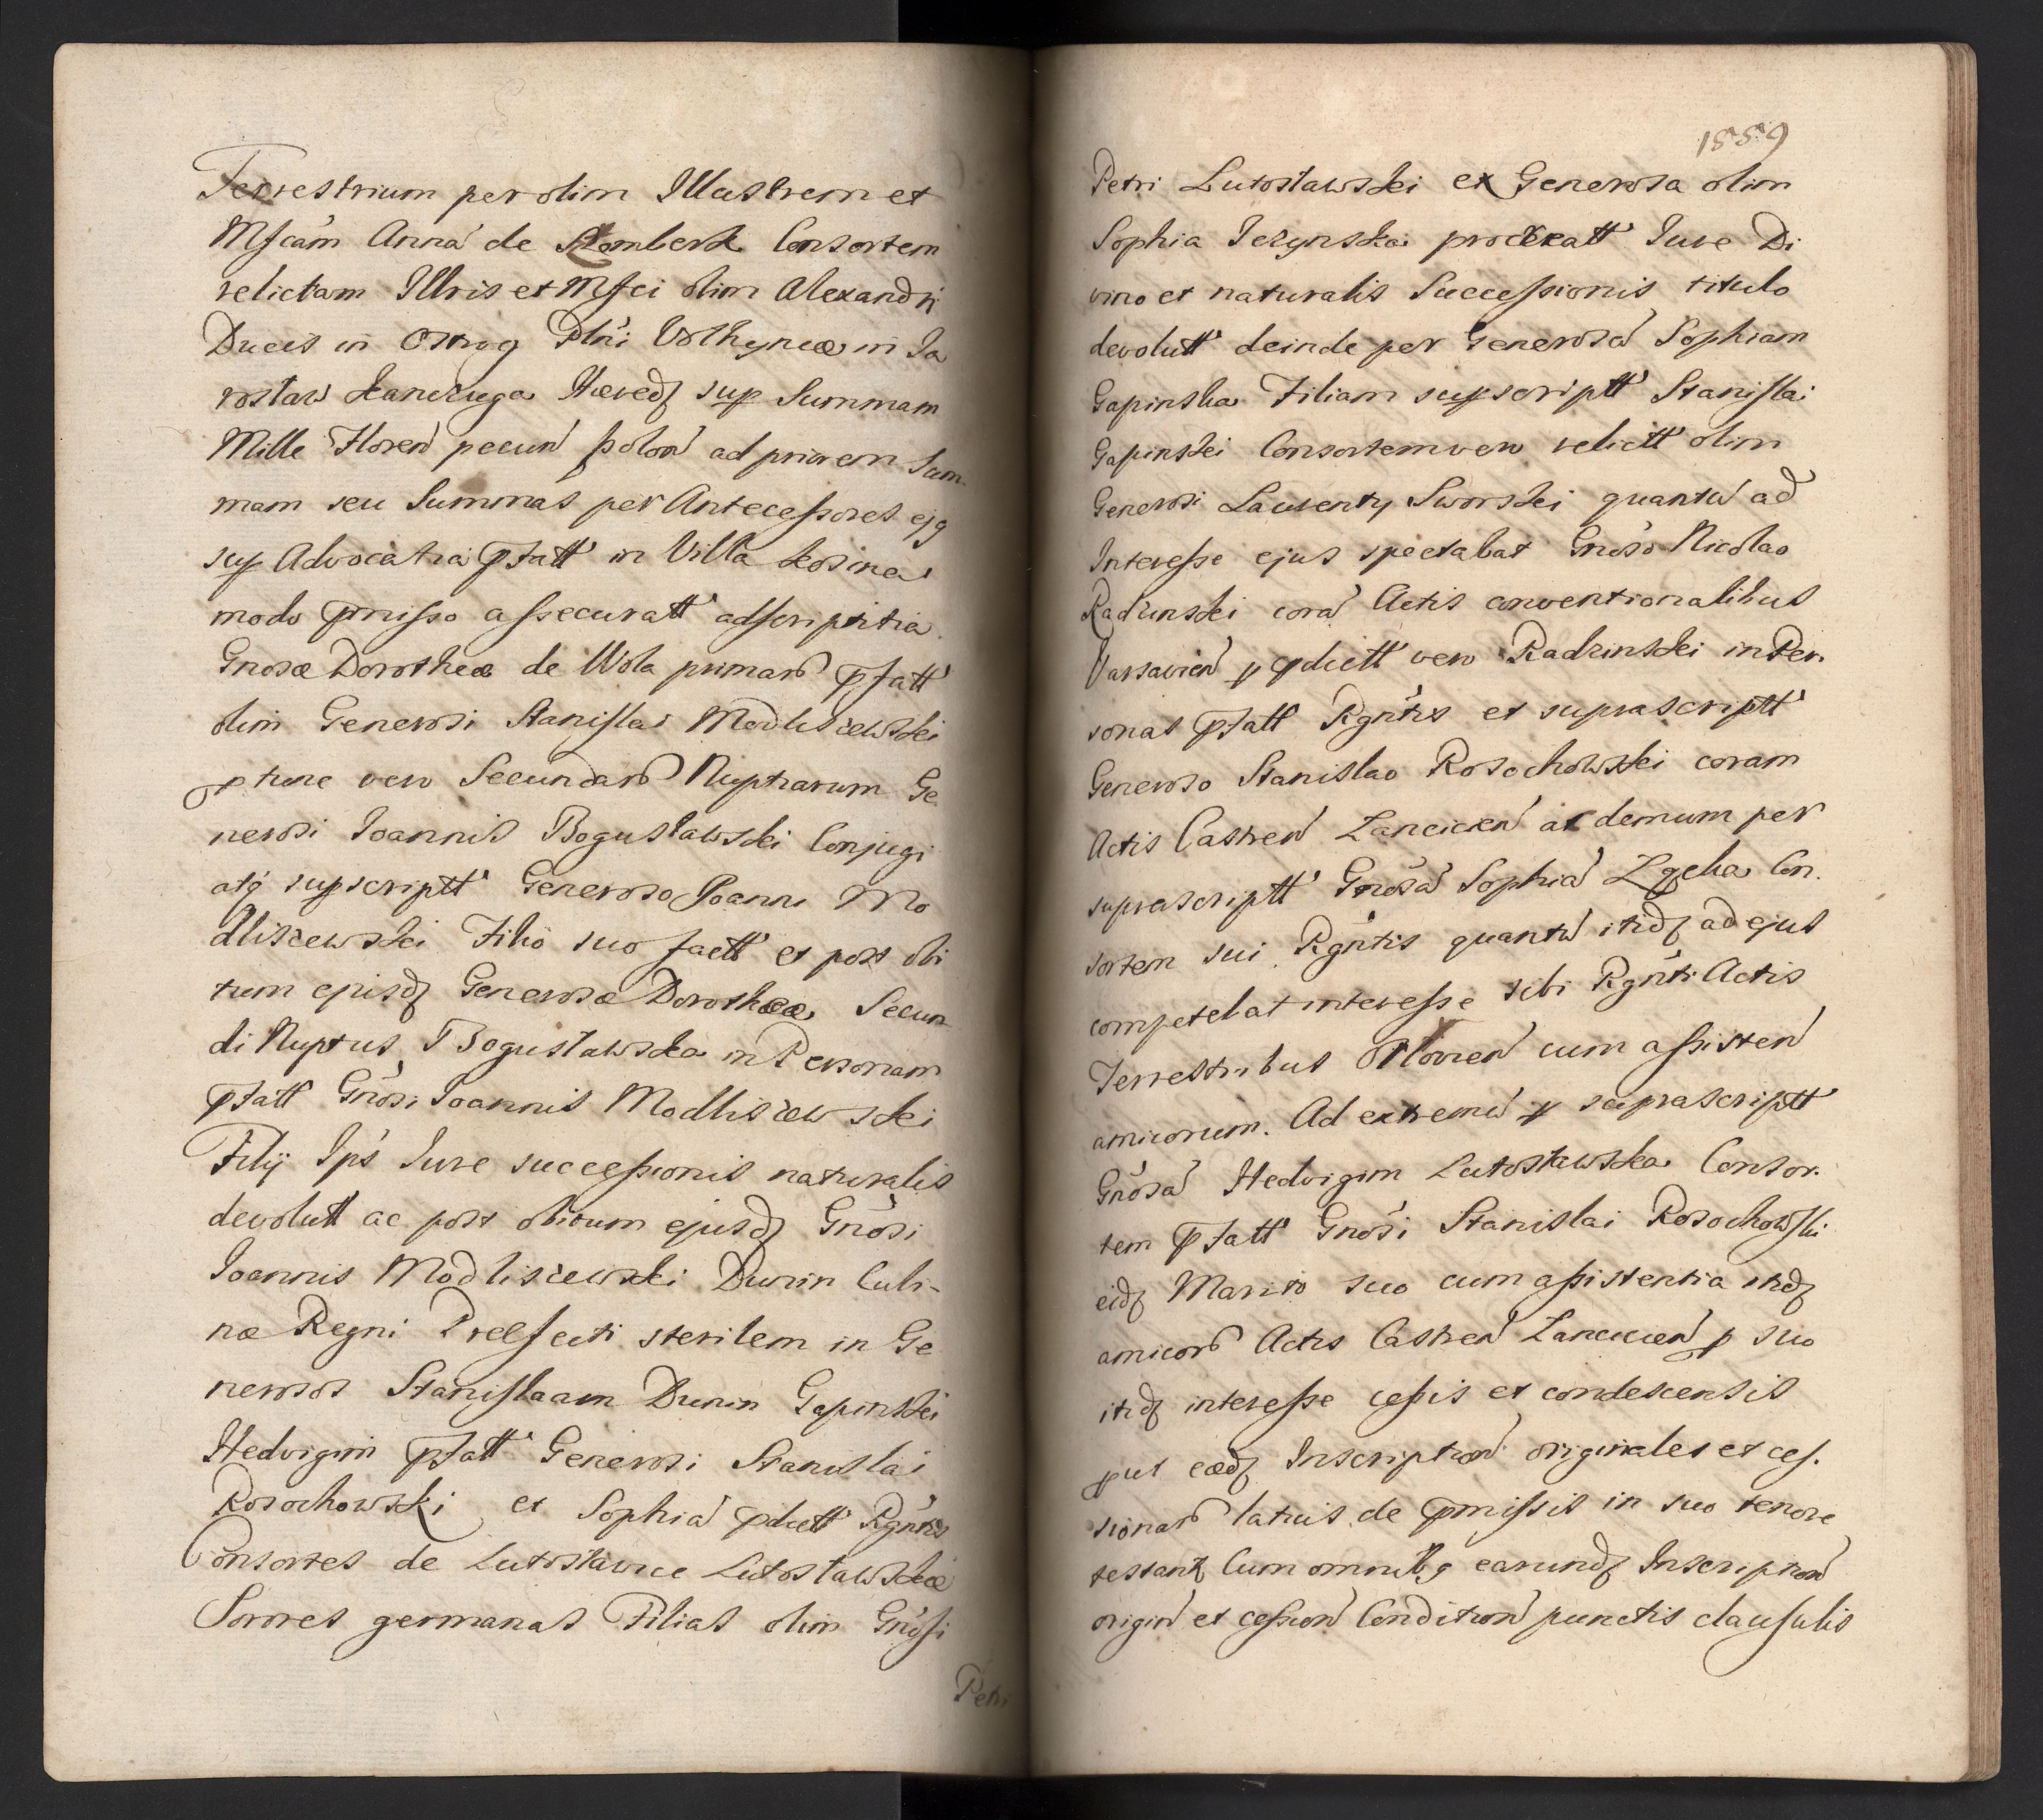 Terrestrium per olim Illustrem et
Mfcam Anna de Stemberk Consortem
relictam Illris et Mfci olim Alexandrj
Ducis in Ostrog Pltni Volhyniæ in Ja
roslaw Kanczuga Hæredz sup Summam
Mille Floren pecun polon ad priorem Sum-
mam seu Summas per Antecessores ejq
sup Advocatia pfatt in Villa Kosina
modo pmisso assecuratt adscriptitia
Gnosæ Dorotheæ de Wola primar pfatt
olim Generosi Stanislai Modlisiewski
p tunc vero Secundar Nuptiarum Ge
nerosi Joannis Boguslawski Conjugi
atq supscriptt Generoso Joanni Mo
dlisiewski Filio suo factt et post obi
tum ejusdz Generosæ Dorotheæ Secun
di Nuptus Boguslawska in Personam
pfatt Gnosi Joannis Modlisiewski
Filij Ips Jure successionis naturalis
devolutt ac post obitum ejusdz Gnosi
Joannis Modlisiewski Dunin Culi-
næ Regni Præfecti sterilem in Ge
nerosos Stanislaum Dunin Gapinski
Hedvigim pfatt Generosi Stanislai
Rosochowski et Sophia pdictt Rgntis
Consortes de Lutoslawice Lutoslawskie
Sorores germanas Filias olim Gnosi
Petri
1559
Petri Lutoslawski ex Generosa olim
Sophia Jezynska procreatt Jure Di
vino et naturalis Successionis titulo
devolutt deinde per Generosa Sophiam
Gapinska Filiam supscriptt Stanislai
Gapinski Consortem vero relictt olim
Generosi Laurentij Sworski quantu ad
Interesse ejus spectabat Gnoso Nicolao
Radzinski cora Actis conventionalibus
Varsavien p pdictt vero Radzinski in Per-
sonas pfatt Rgntis et suprascriptt
Generoso Stanislao Rosochowski coram
Actis Castren Lancicien ac demum per
suprascriptt Gnosa Sophia Zgcka Con-
sortem sui Rgntis quantu itidz ad ejus
competebat interesse sibi Rgnti Actis
Terrestribus Orlovien cum assisten
amicorum. Ad extremu p suprascriptt
Gnosa Hedvigim Lutoslawska Consor-
tem pfatt Gnosi Stanislai Rosochowski
eidz Marito suo cum assistentia itidz
amicor Actis Castren Lancicien p suo
itidz interesse cessis et condescensis
put eædz Inscription originales et ces-
sionar latius de pmissis in suo tenore
testantz Cum omnibq earundz Inscription
origin et cession Condition punctis clausulis